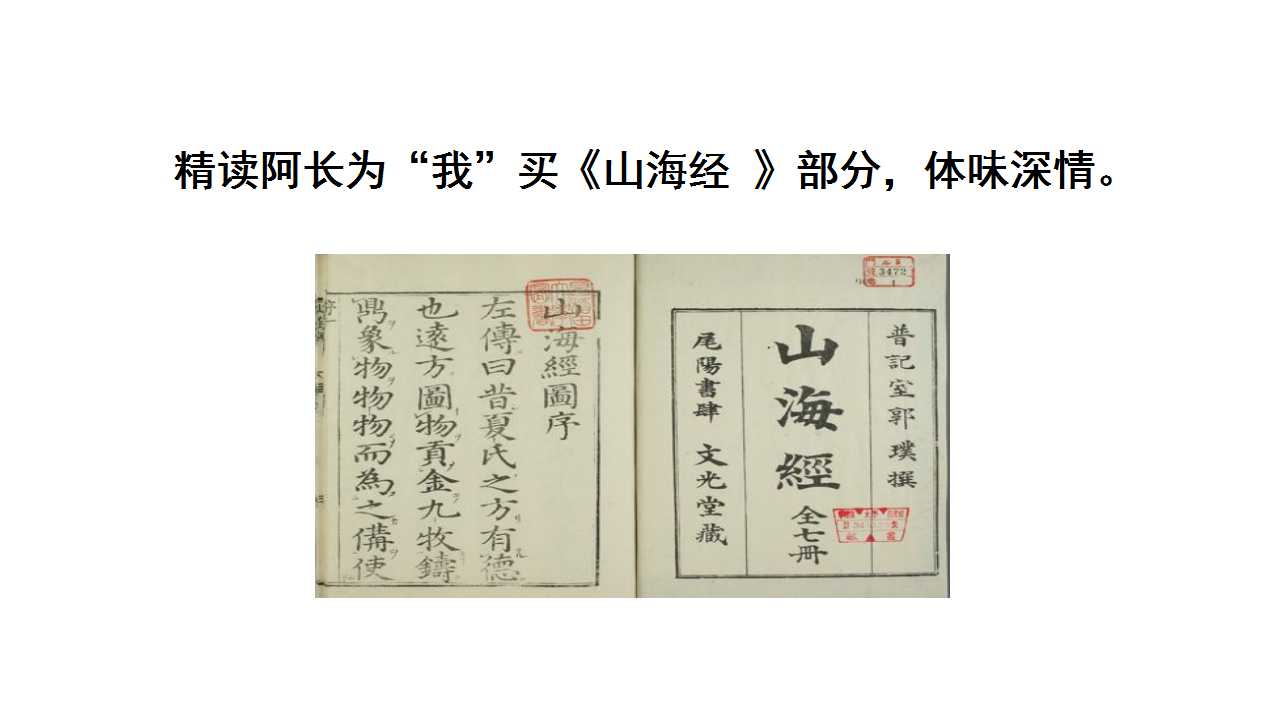 精读阿长为“我”买《山海经 》部分，体味深情。
普記室郭璞撰
山海經
全七冊
尾陽書肆 文光堂藏
3472
1
山海經圖序
左傳曰昔夏氏之方有德
也遠方圖物貢金九牧鑄
象物物物而為之備使